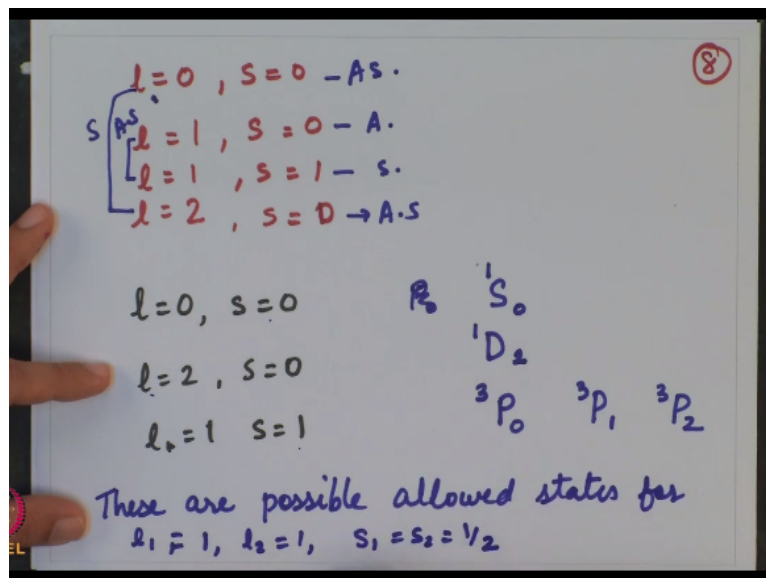 8
l = 0 , S = 0 – AS.
S AS l = 1 , S = 0 – A.
l = 1 , S = 1 – S.
l = 2 , S = D → A.S
l = 0, S = 0 ¹S₀
¹D₂
l = 2 , S = 0
³P₀ ³P₁ ³P₂
l = 1 S = 1
These are possible allowed states for
l₁ = 1, l₂ = 1, S₁ = S₂ = 1/2
EL